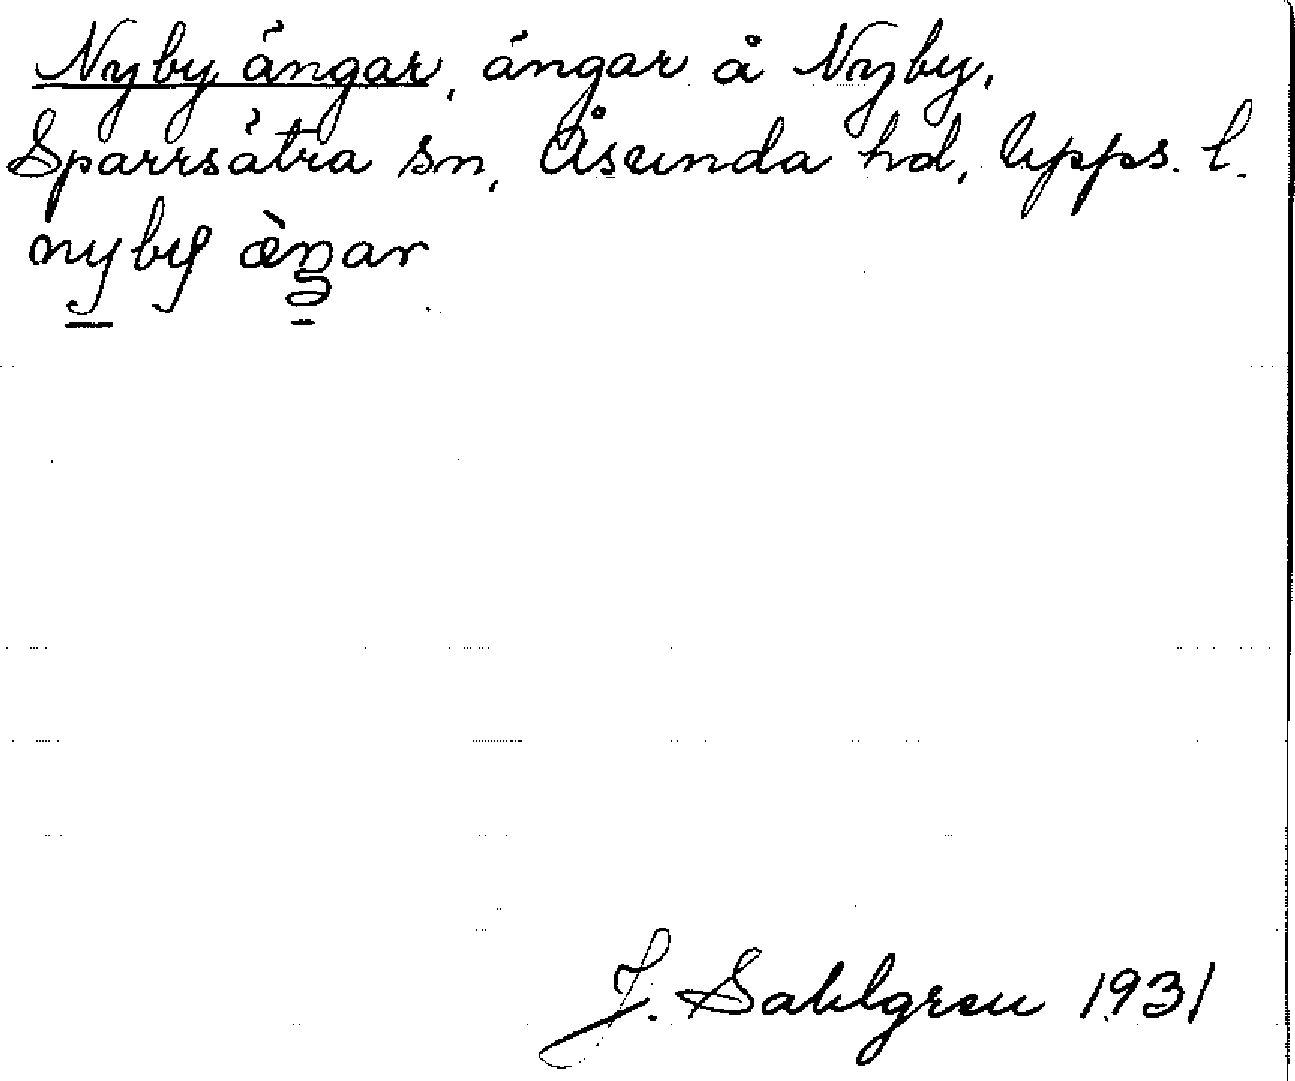 Nyby ängar, ängar å Nyby,
Sparrsätra sn, Åsunda hd, Upps. l.
nyby æ̀ŋar
J. Sahlgren 1931